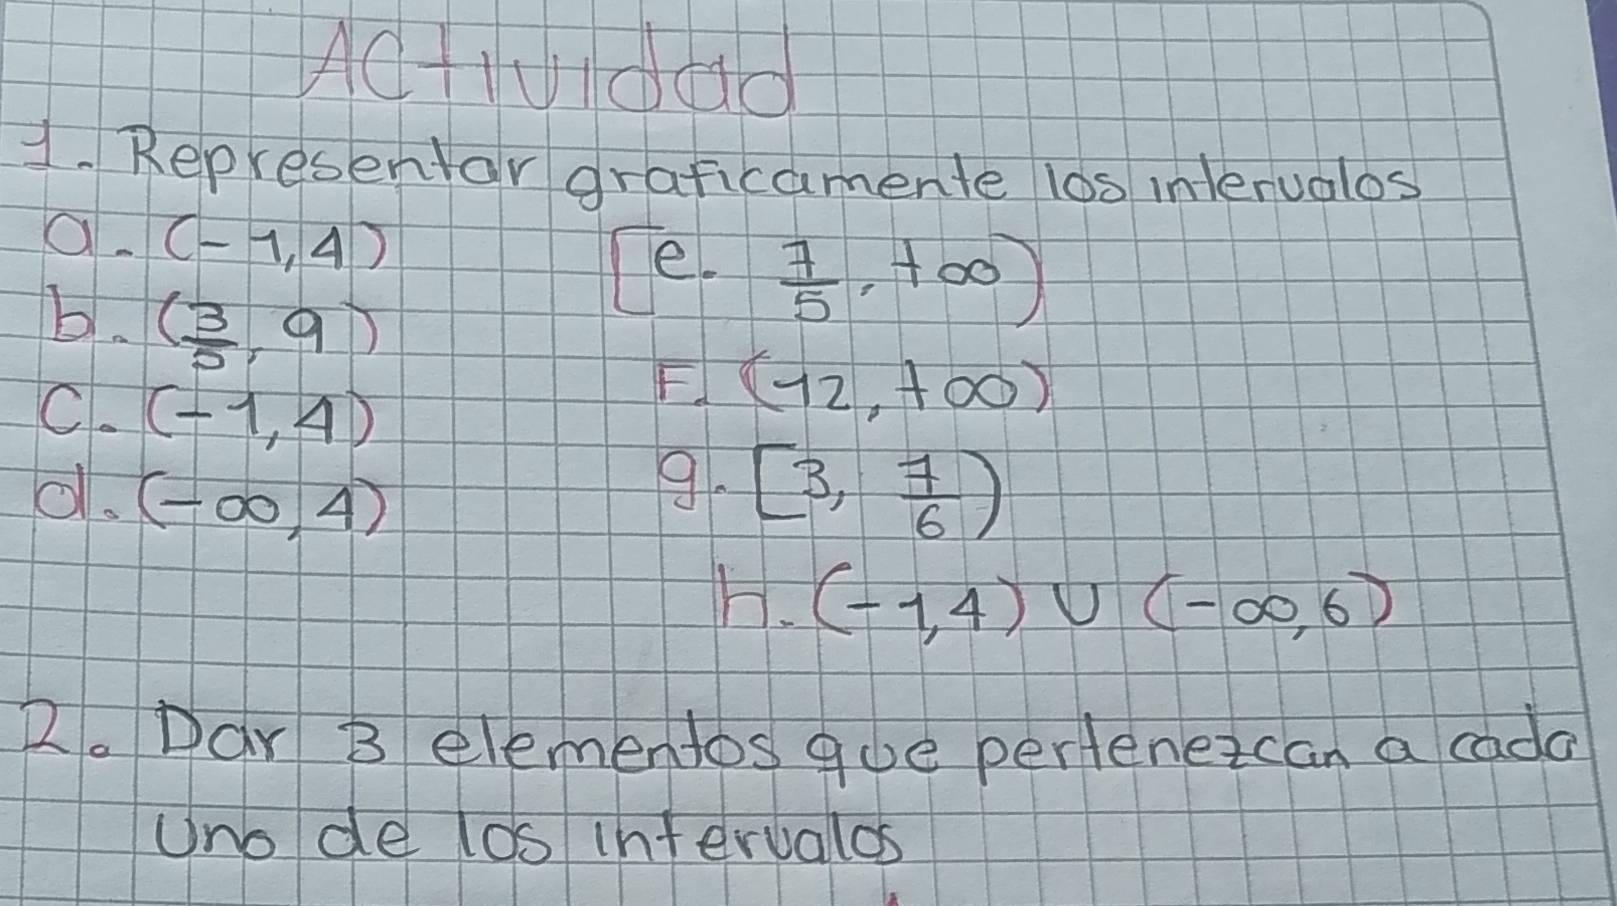 Actividad
1. Representar graficamente los intervalos
a. (-1,4)
b. (3/5, 9)
c. (-1,4)
d. (-∞,4)
[e. 7/5, +∞)
F. (-12, +∞)
g. [3, 7/6)
h. (-1,4) ∪ (-∞,6)
2. Dar 3 elementos que pertenezcan a cada
uno de los intervalos